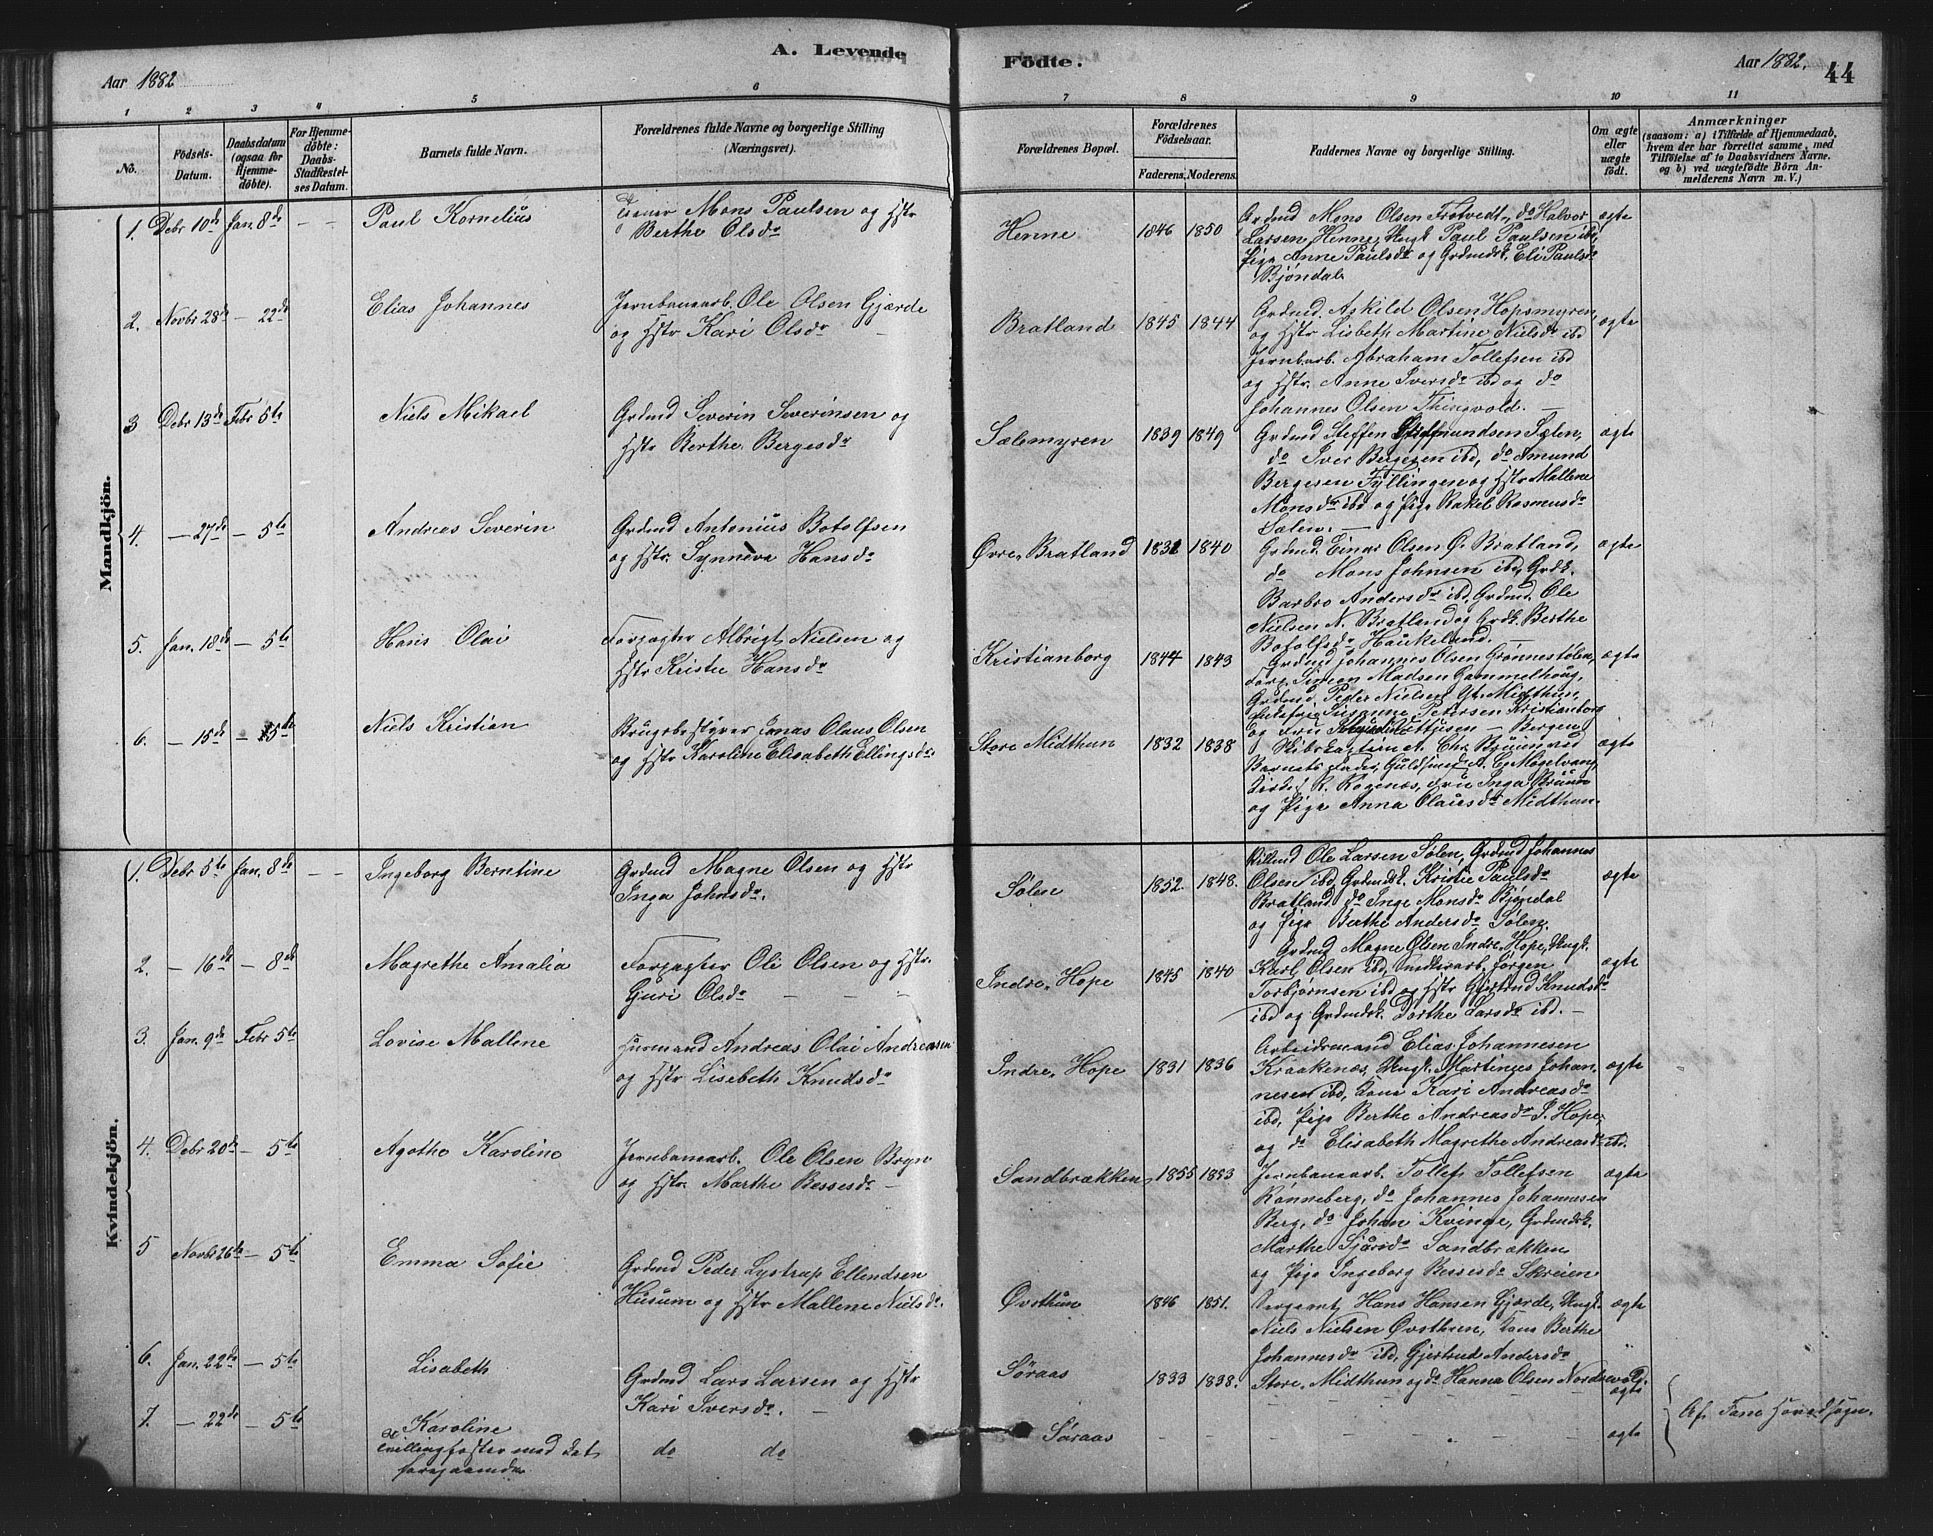 A. Levende Födte.
Aar 1882
Aar 1882. 44
1 2 3 4 5 6 7 8 9 10 11
No.
Födsels-Datum.
Daabsdatum (ogsaa for Hjemmedöbte).
For Hjemmedöbte: Daabs-Stadfæstelses Datum.
Barnets fulde Navn.
Forældrenes fulde Navne og borgerlige Stilling (Næringsvei).
Forældrenes Bopæl.
Forældrenes Födselsaar.
Faderens. Moderens.
Faddernes Navne og borgerlige Stilling.
Om ægte eller uægte födt.
Anmærkninger
(saasom: a) i Tilfælde af Hjemmedaab, hvem der har forrettet samme, med Tilföielse af to Daabsvidners Navne. og b) ved uægtefödte Börn Anmelderens Navn m. V.)
Mandkjön.
1. Debr 10de Jan. 8de — — Paul Kornelius
Mons Paulsen og Hstr
Berthe Olsdr
Henne 1846 1850
Grdmd Mons Olsen Frotvedt, do Halvor
Larsen Henne, Ungk Paul Paulsen ibd,
Pige Anne Paulsdr og Grdmdsk. Eli Paulsdr
Bjöndal
ægte
2. Novbr 28de — 22de Elias Johannes
Jernbanearb. Ole Olsen Gjærde
og Hstr Kari Olsdr —
Bratland 1845 1844
Grdmd. Askild Olsen Hopsmyren
og Hstr Lisbeth Martine Nielsdr ibd
Jernbarb. Abraham Tollefsen ibd
og Hstr. Anne Iversdr ibd og do
Johannes Olsen Thingvold. —
ægte
3 Debr 13de Febr 5te Niels Mikael
Grdmd Severin Severinsen og
Hstr Berthe Bergesdr
Sælemyren 1839 1849
Grdmd Steffen Sælen,
do Iver Bergesen ibd, do Amund
Bergesen Fyllingen og Hstr Mallene
Monsdr ibd og Pige Rakel Rasmusdr
Sælen. —
ægte
4. — 27de — 5te Andreas Severin
Grdmd Antonius Botolfsen
og Hstr. Synneva Hansdr
Øvre Bratland 1831 1840
Grdmd. Einar Olsen Ø. Bratland,
do Mons Johnsen ibd, Grdk.
Barbro Andersdr ibd, Grdmd. Ole
Nielsen N. Bratland og Grdk. Berthe
Botolfsdr Haukeland. —
ægte
5. Jan. 18de — 5te Hans Olai
Forpagter Albrigt Nielsen og
Hstr Kristie Hansdr
Kristianborg 1844 1843
Grdmd Johannes Olsen Grønnestølen,
Forp. Simeon Madsen Gammelhoug,
Grdmd. Peder Nielsen Midthun,
Susanne Petersen Kristianborg
og Fru — Bergen
ægte
6. — 15de — 5te Niels Kristian
Brugsbestyrer Jonas Olaus Olsen
og Hstr Karoline Elisabeth Ellingsdr
Store Midthun 1832 1838
Skibskaptein A. Chr. Bruun ved
Barnets Fader, Guldsmed A. C. Mögelvang,
R. Rogenæs, Fru Inga Bruun
og Pige Anna Olausdr Midthun.
ægte
Kvindekjön.
1. Debr 5te Jan. 8de — — Ingeborg Berntine
Grdmd Magne Olsen og Hstr
Inga Johnsdr.
Sölen 1852. 1848.
Ole Larsen Sölen, Grdmd Johannes
Olsen ibd, Grdmdsk. Kristie Paulsdr
Bratland do Inge Monsdr Bjöndal
og Pige Berthe Andersdr Sölen.
ægte
2. — 16de — 8de Magrethe Amalia
Forpagter Ole Olsen og Hstr.
Guri Olsdr — — —
Indre Hope 1845 1840
Grdmd Magne Olsen Indre Hope, Ungk.
Karl Olsen ibd, Jörgen
Torbjörnsen ibd og Hstr Gjertrud Knudsdr
ibd og Grdmdsk. Dorthe Larsdr ibd. —
ægte
3. Jan. 9de Febr 5te Lovise Mallene
Husmand Andreas Olai Andreasen
og Hstr Lisebeth Knudsdr
Indre Hope 1831 1836
Arbeidsmand Elias Johannesen
Kraakenæs, Ungk. Martines Johan-
nesen ibd, Kone Kari Andreasdr
ibd, Pige Berthe Andreasdr I. Hope,
og do Elisabeth Magrethe Andreasdr ibd.
ægte
4. Debr 20de — 5te Agathe Karoline
Jernbanearb. Ole Olsen Bryn
og Hstr. Marthe Bessesdr —
Sandbrækken 1855 1853
Jernbanearb. Tollef Tollefsen
Rønneberg, do Johannes Johannesen
Berg, do Johan Kvinge, Grdmdsk.
Marthe Sjursdr Sandbrækken
og Pige Ingeborg Bessesdr Skreien
ægte
5 Novbr 26de — 5te Emma Sofie
Grdmd Peder Lystrup Ellendsen
Husum og Hstr Mallene Nielsdr.
Øvsthun 1846 1851.
Hans Hansen Gjærde, Ungk.
Niels Nielsen Øvsthun, Kone Berthe
Johannesdr ibd, Gjertrud Andersdr
Store Midthun og do Hanna Olsen
ægte
6. Jan. 22de — 5te Lisabeth
Grdmd Lars Larsen og Hstr
Kari Iversdr. —
Söraas 1833 1838.
ægte
7. — 22de — 5te Karoline
tvillingsøster med det
foregaaende
do do
Søraas — — — — — —
ægte
Af Fane Hovedsogn.